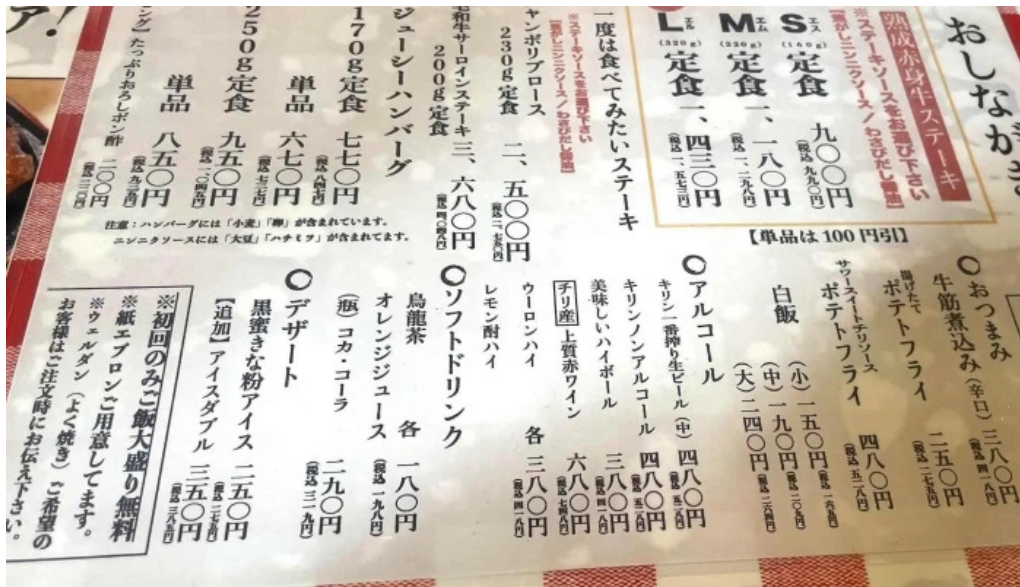 おしながき
熟成赤身牛ステーキ
※ステーキソースをお選び下さい
【焦がしニンニクソース／わさびだし醤油】
S エス (160g) 定食 九〇〇円 (税込 九九〇円)
M エム (220g) 定食 一、一八〇円 (税込 一、二九八円)
L エル (320g) 定食 一、四三〇円 (税込 一、五七三円)
【単品は100円引】
一度は食べてみたいステーキ
※ステーキソースをお選び下さい
【焦がしニンニクソース／わさびだし醤油】
ャンボリブロース
230g定食 二、五〇〇円 (税込 二、七五〇円)
毛和牛サーロインステーキ
200g定食 三、六八〇円 (税込 四、〇四八円)
ジューシーハンバーグ
170g定食 七七〇円 (税込 八四七円)
単品 六七〇円 (税込 七三七円)
250g定食 九五〇円 (税込 一、〇四五円)
単品 八五〇円 (税込 九三五円)
ング】たっぷりおろしポン酢 二〇〇円 (税込 二二〇円)
注意：ハンバーグには「小麦」「卵」が含まれています。
ニンニクソースには「大豆」「ハチミツ」が含まれてます。
ア！
〇おつまみ
牛筋煮込み(辛口) 三八〇円 (税込 四一八円)
揚げたて
ポテトフライ 二五〇円 (税込 二七五円)
サワースイートチリソース
ポテトフライ 四八〇円 (税込 五二八円)
白飯
(小) 一五〇円 (税込 一六五円)
(中) 一九〇円 (税込 二〇九円)
(大) 二四〇円 (税込 二六四円)
〇アルコール
キリン一番搾り生ビール(中) 四八〇円 (税込 五二八円)
キリンノンアルコール 四八〇円 (税込 五二八円)
美味しいハイボール 三八〇円 (税込 四一八円)
チリ産 上質赤ワイン 六八〇円 (税込 七四八円)
ウーロンハイ 各 三八〇円 (税込 四一八円)
レモン酎ハイ
〇ソフトドリンク
烏龍茶 各 一八〇円 (税込 一九八円)
オレンジジュース
(瓶) コカ・コーラ 二九〇円 (税込 三一九円)
〇デザート
黒蜜きな粉アイス 二五〇円 (税込 二七五円)
【追加】アイスダブル 三五〇円 (税込 三八五円)
※初回のみご飯大盛り無料
※紙エプロンご用意してます。
※ウェルダン（よく焼き）ご希望の
お客様はご注文時にお伝え下さい。